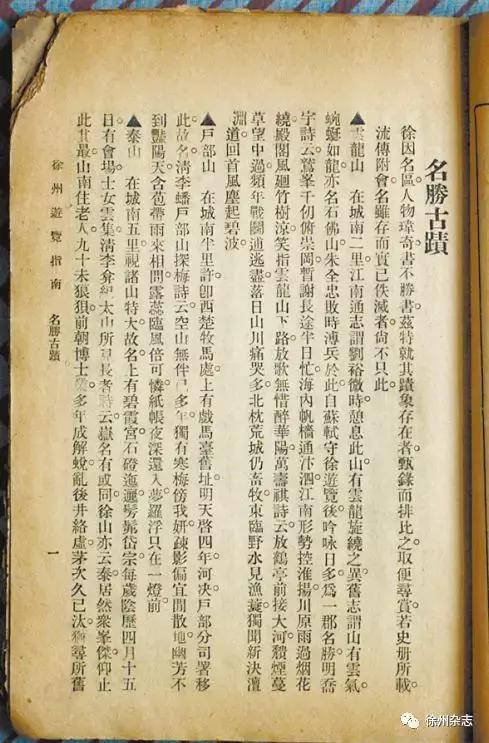 名勝古蹟
徐因名區人物瑋奇書不勝書茲特就其蹟象存在者甄錄而排比之取便尋賞若史册所載
流傳附會名雖存而實已佚滅者尚不只此。
▲雲龍山　在城南二里江南通志謂劉裕微時憩息此山有雲龍旋繞之異舊志謂山有雲氣
蜿蜒如龍亦名石佛山朱全忠敗時溥兵於此自蘇軾守徐遊覽後吟咏日多爲一郡名勝明喬
宇詩云鷲峯千仞俯崇岡暫謝長途半日忙海內帆檣通汴泗江南形勢控淮揚川原雨過烟花
繞殿閣風迴竹樹凉笑指雲龍山下路放歌無惜醉華陽萬壽祺詩云放鶴亭前接大河積煙蔓
草望中過頻年戰鬭逋逃盡落日山川痛哭多北枕荒城仍畜牧東臨野水見漁蓑獨聞新決澶
淵道回首風塵起碧波。
▲戶部山　在城南半里許卽西楚牧馬處上有戲馬臺舊址明天啓四年河决戶部分司署移
此故名清李蟠戶部山探梅詩云空山無伴已多年獨有寒梅傍我妍疎影偏宜閒散地幽芳不
到豔陽天含苞帶雨來相問露蕊臨風倍可憐紙帳夜深還入夢羅浮只在一燈前
▲泰山　在城南五里視諸山特大故名上有碧霞宮石磴迤邐髣髴岱宗每歲陰歷四月十五
日有會場士女雲集清李弇紀太山所長者詩云嶽名有或同徐山亦云泰居然衆峯傑仰止
此其最山南住老人九十未狼狽前朝博士業多年成解蛻亂後井絡虛茅次久已汰獨尋所舊
徐州遊覽指南　名勝古蹟　一
徐州杂志